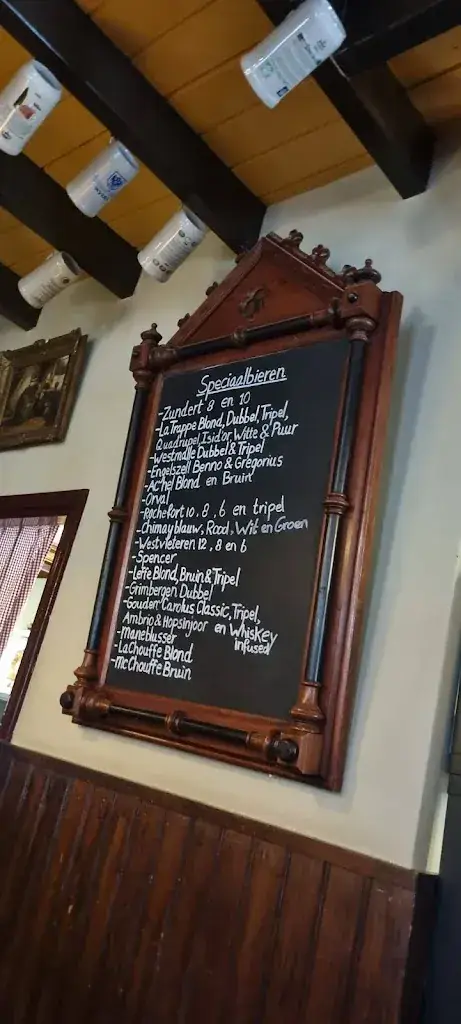 Speciaalbieren
-Zundert 8 en 10
-La Trappe Blond, Dubbel, Tripel,
Quadrupel, Isid'or, Witte & Puur
-Westmalle Dubbel & Tripel
-Engelszell Benno & Gregorius
-Achel Blond en Bruin
-Orval
-Rochefort 10, 8, 6 en tripel
-Chimay blauw, Rood, Wit en Groen
-Westvleteren 12, 8 en 6
-Spencer
-Leffe Blond, Bruin & Tripel
-Grimbergen Dubbel
-Gouden Carolus Classic, Tripel,
Ambrio & Hopsinjoor en Whiskey
infused
-Maneblusser
-La Chouffe Blond
-Mc Chouffe Bruin